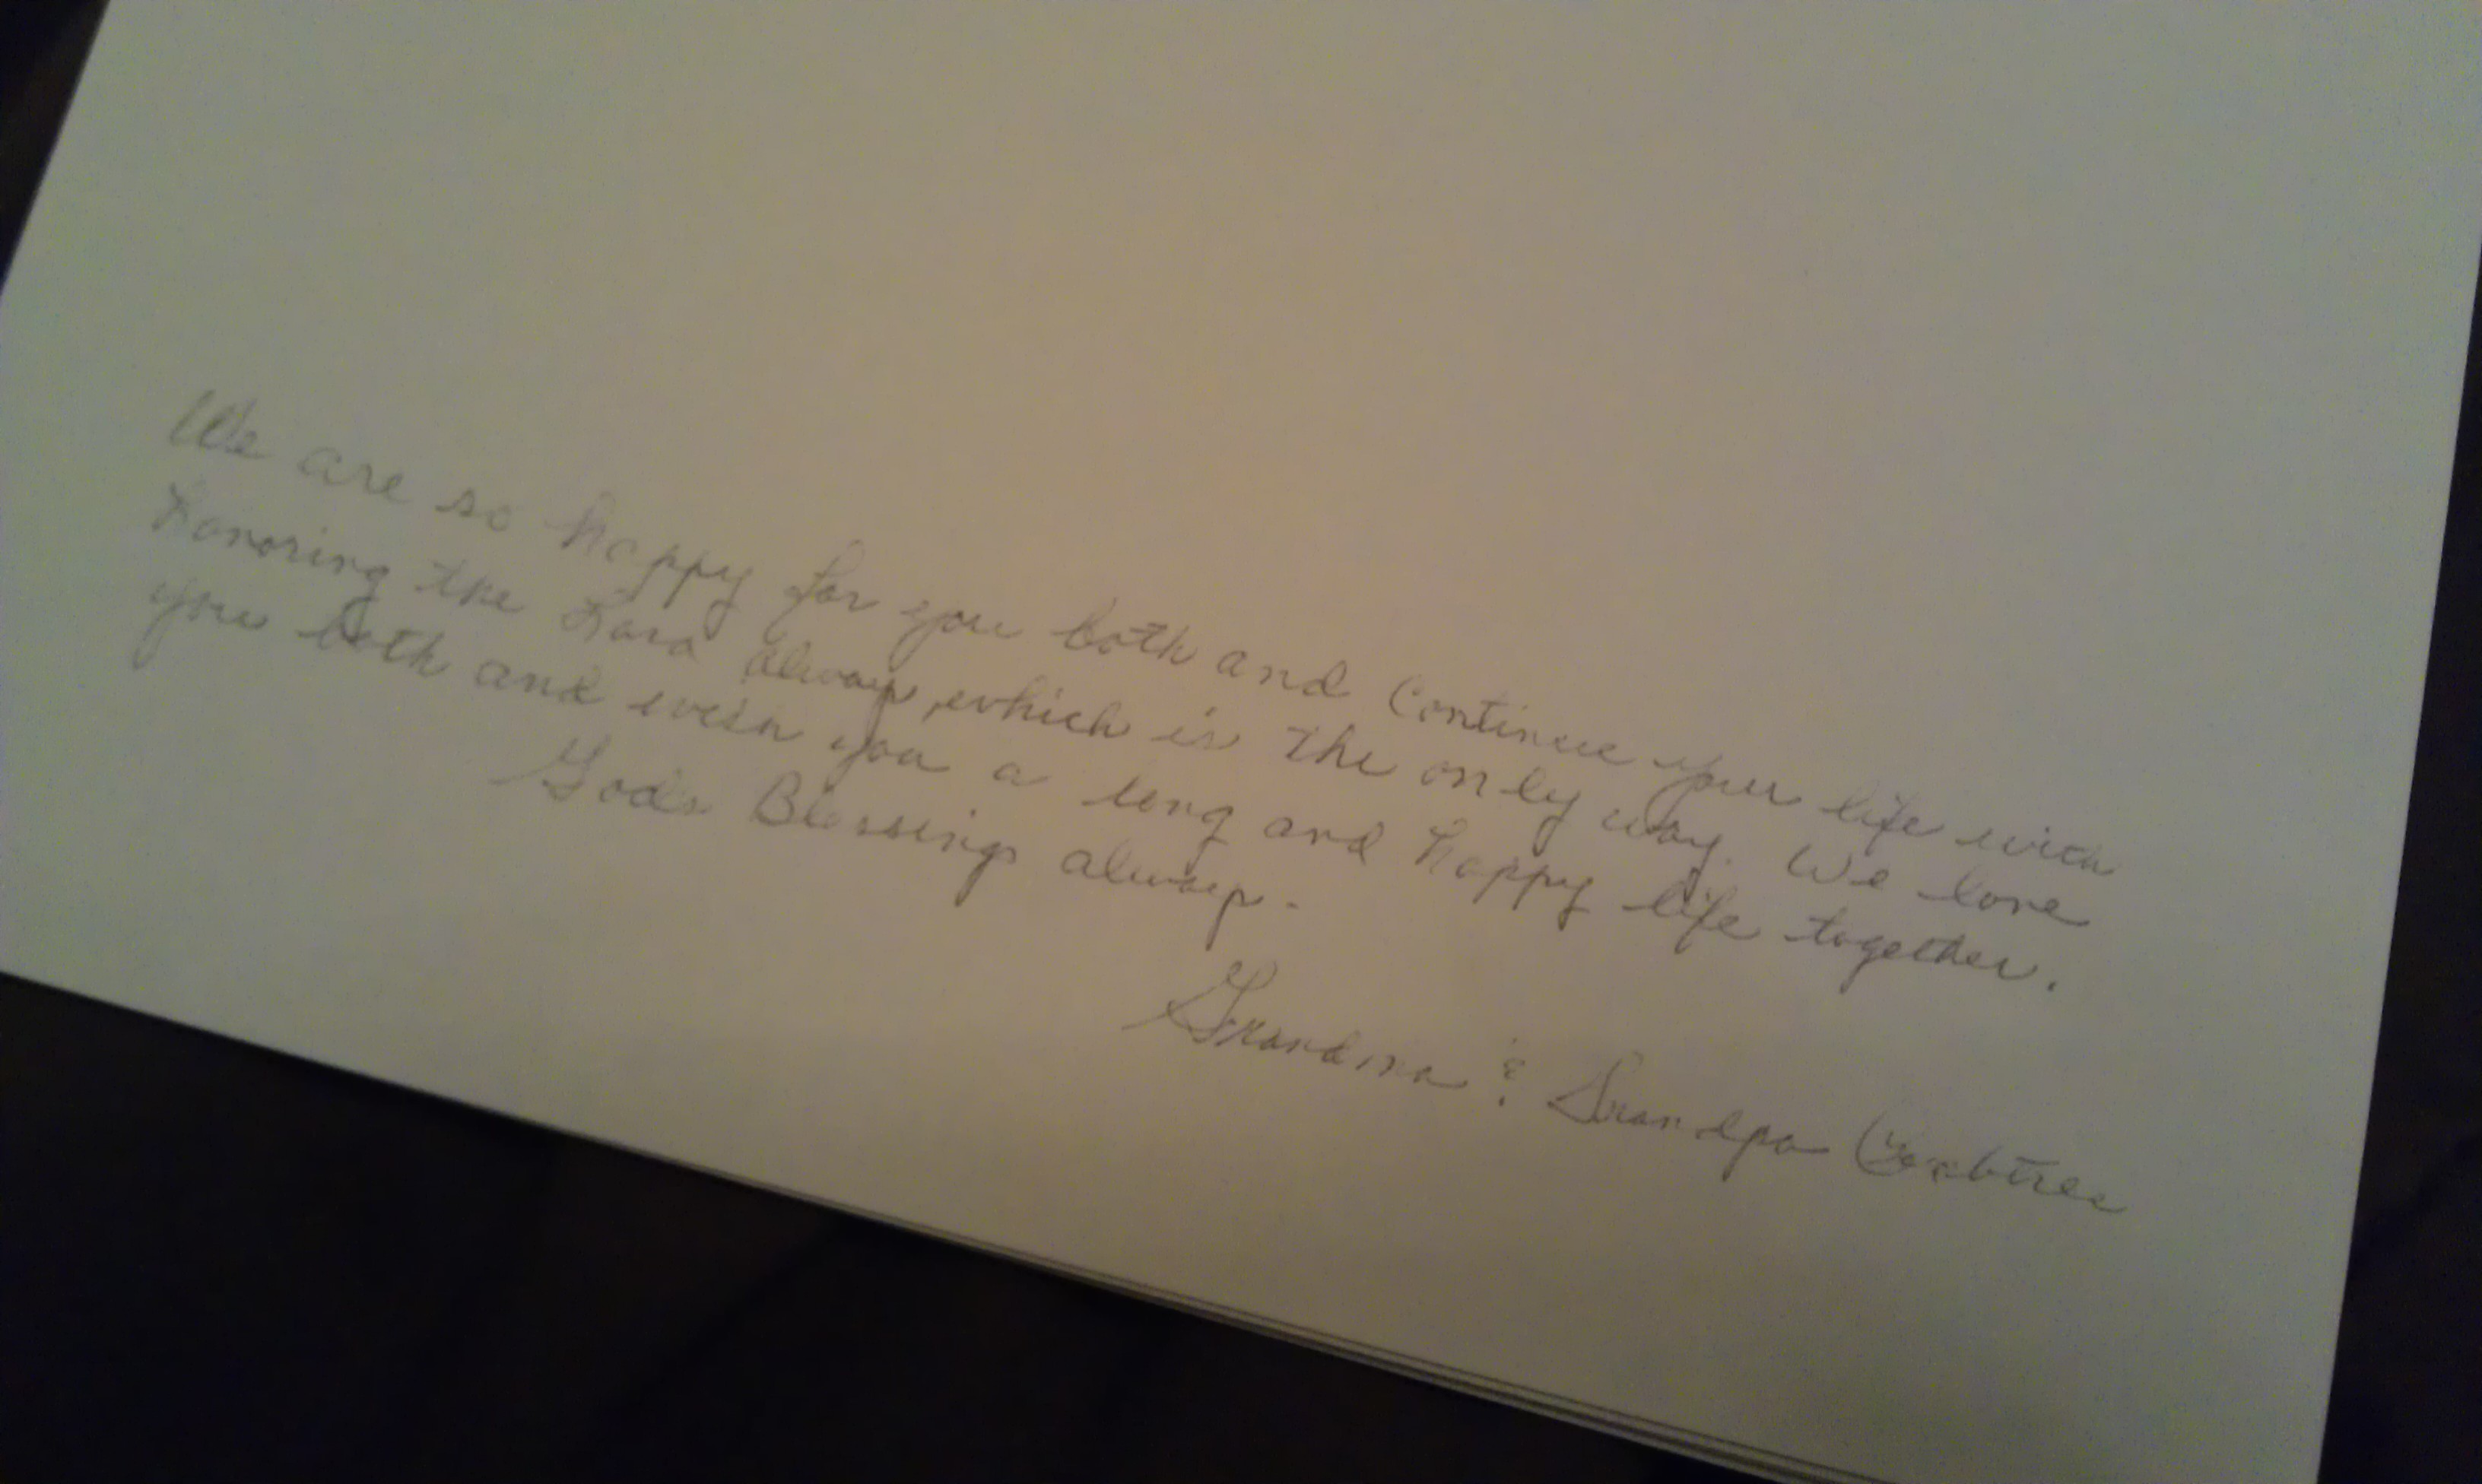 We are so happy for you both and Continue your life with
honoring the Lord always, which is the only way. We love
you both and wish you a long and happy life together.
God's Blessings always.
Grandma & Grandpa Crabtree